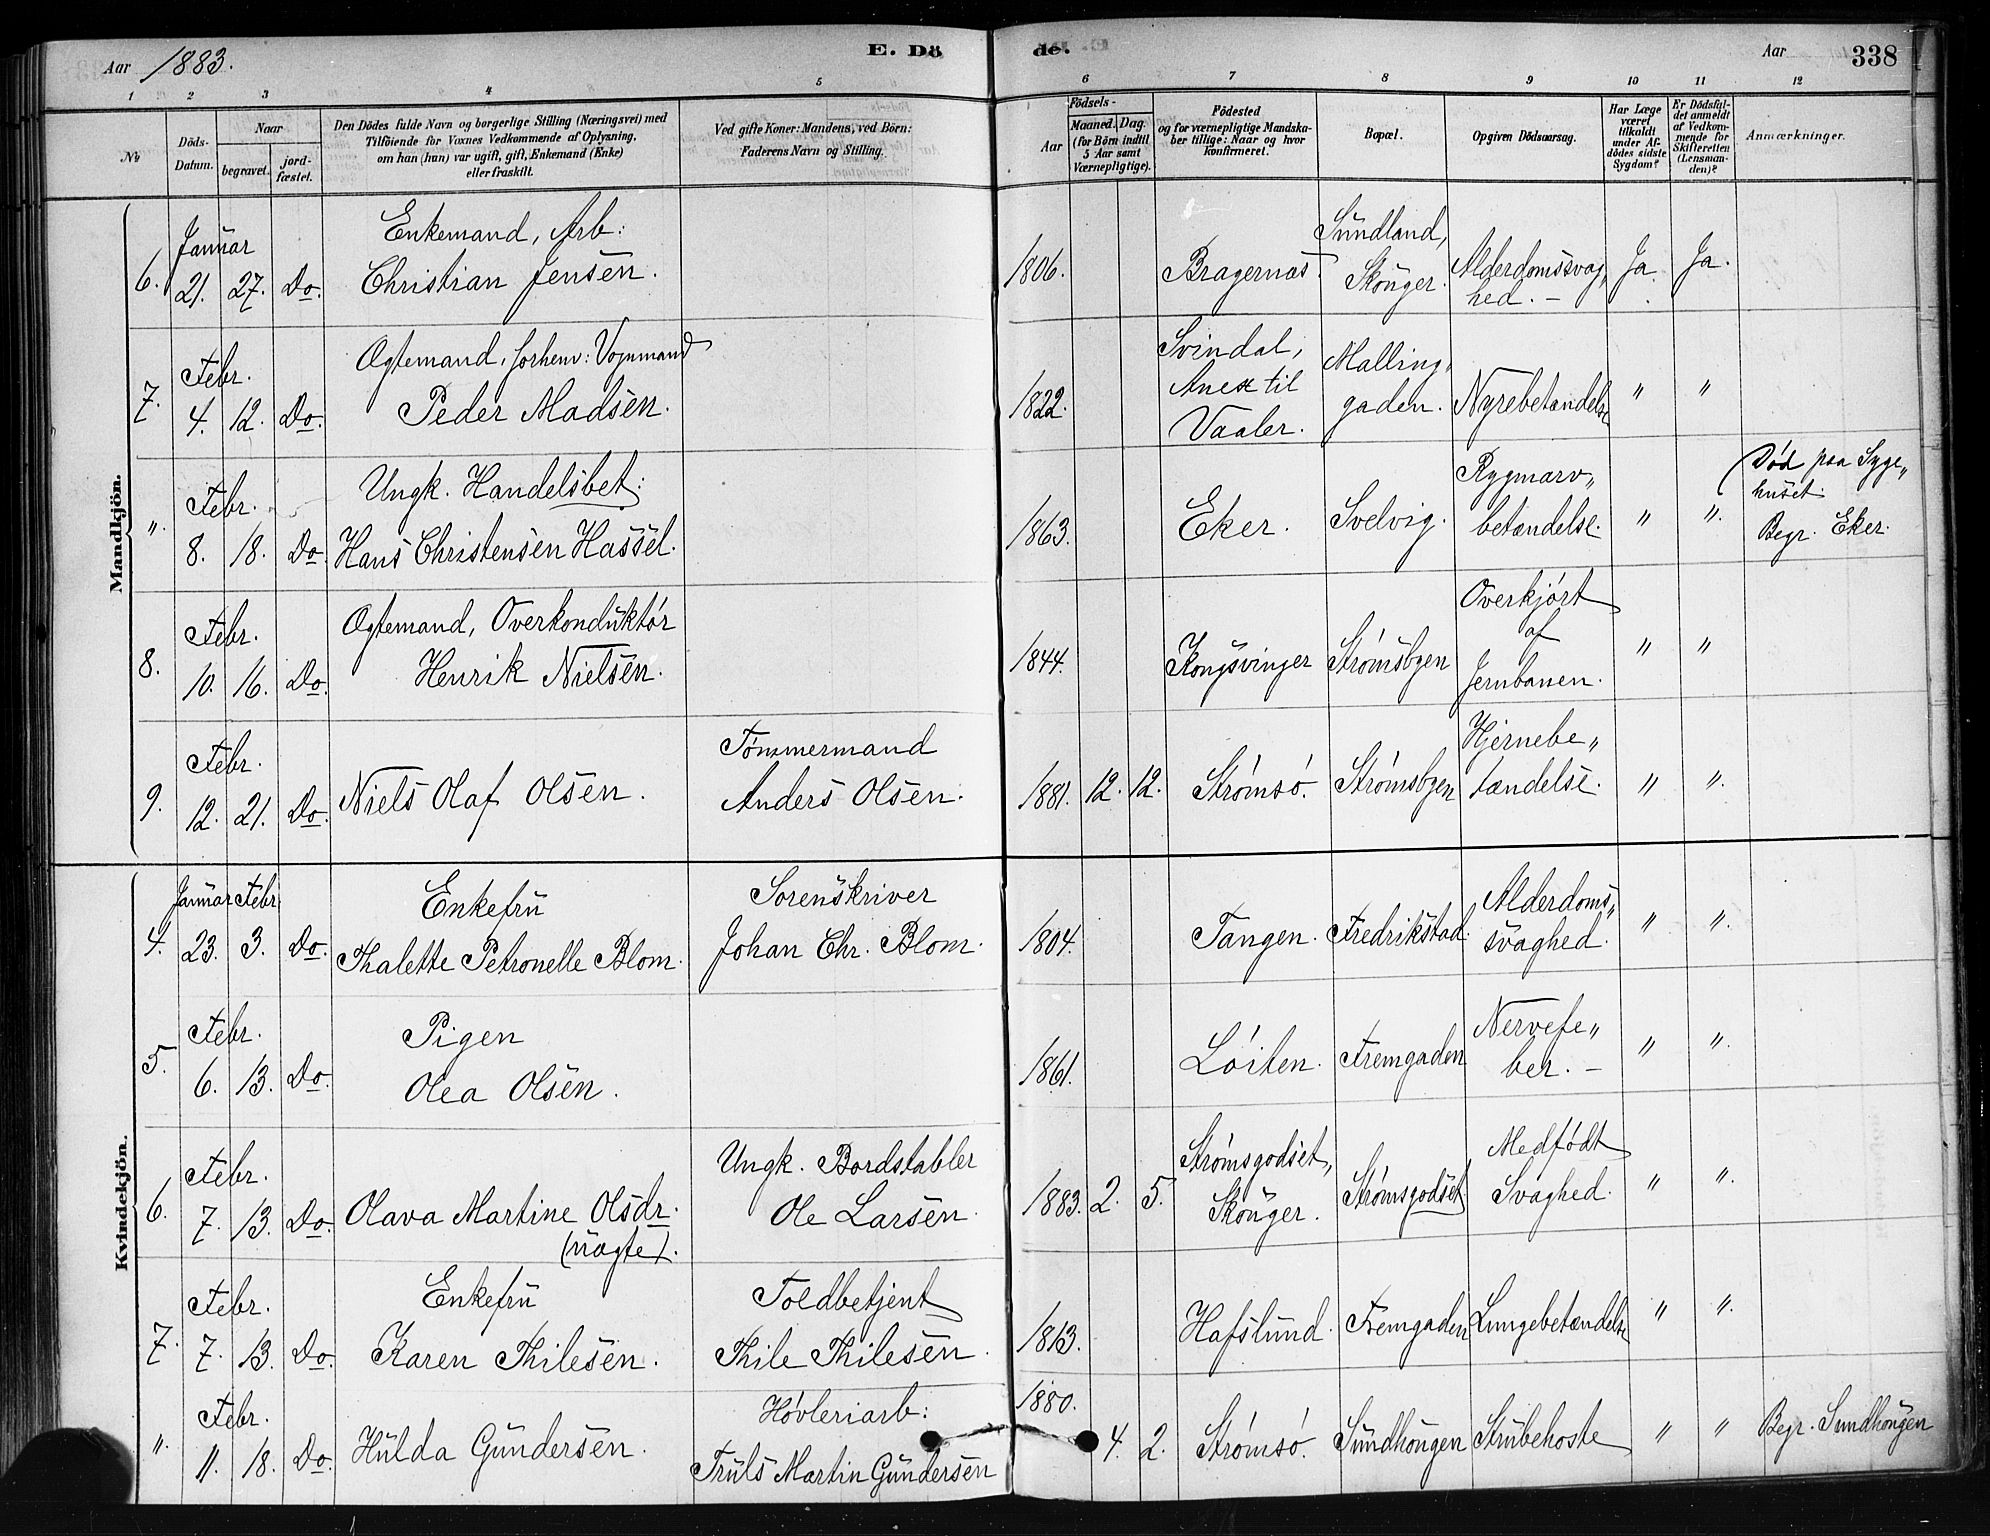 Aar 1883.
E. Dö
de.
Aar
338
1 2 3 4 5 6 7 8 9 10 11 12
No
Döds-Datum.
Naar
begravet.
jord-fæstet.
Den Dödes fulde Navn og borgerlige Stilling (Næringsvei) med
Tilföiende for Voxnes Vedkommende af Oplysning,
om han (hun) var ugift, gift, Enkemand (Enke)
eller fraskilt.
Ved gifte Koner: Mandens, ved Börn:
Faderens Navn og Stilling.
Födsels-
Aar
Maaned.
Dag.
(for Börn indtil
5 Aar samt
Værnepligtige).
Födested
og for værnepligtige Mandska-
ber tillige: Naar og hvor
konfirmeret.
Bopæl.
Opgiven Dödsaarsag.
Har Læge
været
tilkaldt
under Af-
dödes sidste
Sygdom?
Er Dödsfal-
det anmeldt
af Vedkom-
mende for
Skifteretten
(Lensman-
den)?
Anmærkninger.
Mandkjön.
6. Januar 21. 27. Do. Enkemand, Arb:
Christian Jensen.
1806. Bragernæs. Sundland,
Skouger. Alderdomssvag„
hed. – Ja. Ja.
7. Febr. 4. 12. Do. Ægtemand, forhenv: Vognmand
Peder Madsen.
1822. Svindal,
Anex til
Vaaler. Malling„
gaden. Nyrebetændelse " "
". Febr. 8. 18. Do. Ungk. Handelsbet:
Hans Christensen Hassel.
1863. Eker. Svelvig. Rygmarv„
betændelse. " ". Död paa Syge„
huset.
Begr. Eker.
8. Febr. 10. 16. Do. Ægtemand, Overkonduktór
Henrik Nielsen.
1844. Kongsvinger Strómsbyen Overkjórt
af
Jernbanen. " "
9. Febr. 12. 21. Do. Niels Olaf Olsen. Tómmermand
Anders Olsen.
1881. 12. 12. Strómsó. Strómsbyen Hjernebe„
tændelse. " ".
Kvindekjön.
4. Januar 23. Febr. 3. Do. Enkefru
Thalette Petronelle Blom. Sorenskriver
Johan Chr. Blom.
1804. Tangen. Fredrikstad. Alderdoms„
svaghed. " ".
5. Febr. 6. 13. Do. Pigen
Olea Olsen.
1861. Lóiten. Fremgaden Nervefe„
ber. – " ".
6. Febr. 7. 13. Do. Olava Martine Olsdr.
(uægte). Ungk. Bordstabler
Ole Larsen.
1883. 2. 5. Strómsgodset,
Skouger. Strómsgodset Medfódt
Svaghed. " ".
7. Febr. 7. 13. Do. Enkefru
Karen Thilesen. Toldbetjent
Thile Thilesen.
1813. Hafslund. Fremgaden Lungebetændelse " ".
". Febr. 11. 18. Do. Hulda Gundersen. Hóvleriarb:
Truls Martin Gundersen
1880. 4. 2. Strómsó. Sundhougen Strubehoste " " Begr. Sundhougen